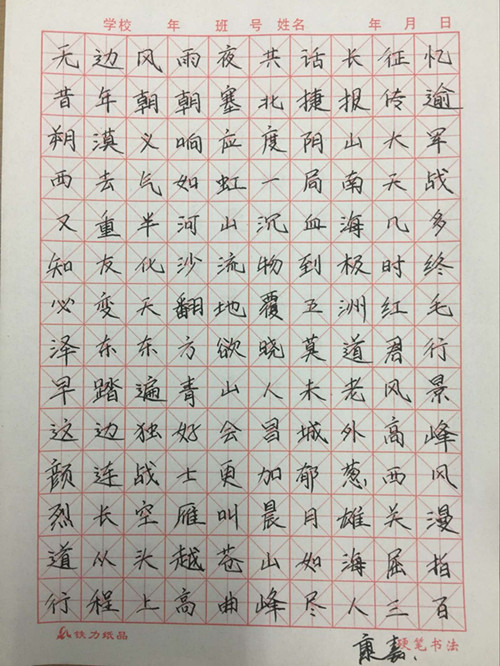 学校 年 班 号 姓名 年 月 日
无边风雨夜共话长征忆
昔年朝朝塞北捷报传逾
朔漠义响应度阴山大军
西去气如虹一局南天战
又重半河山沉血海几多
知友化沙流物到极时终
必变天翻地覆五洲红毛
泽东东方欲晓莫道君行
早踏遍青山人未老风景
这边独好会昌城外高峰
颜连战士更加郁葱西风
烈长空雁叫晨月雄关漫
道从头越苍山如海屈指
行程上高曲峰尽人三百
铁力纸品 康嘉. 硬笔书法